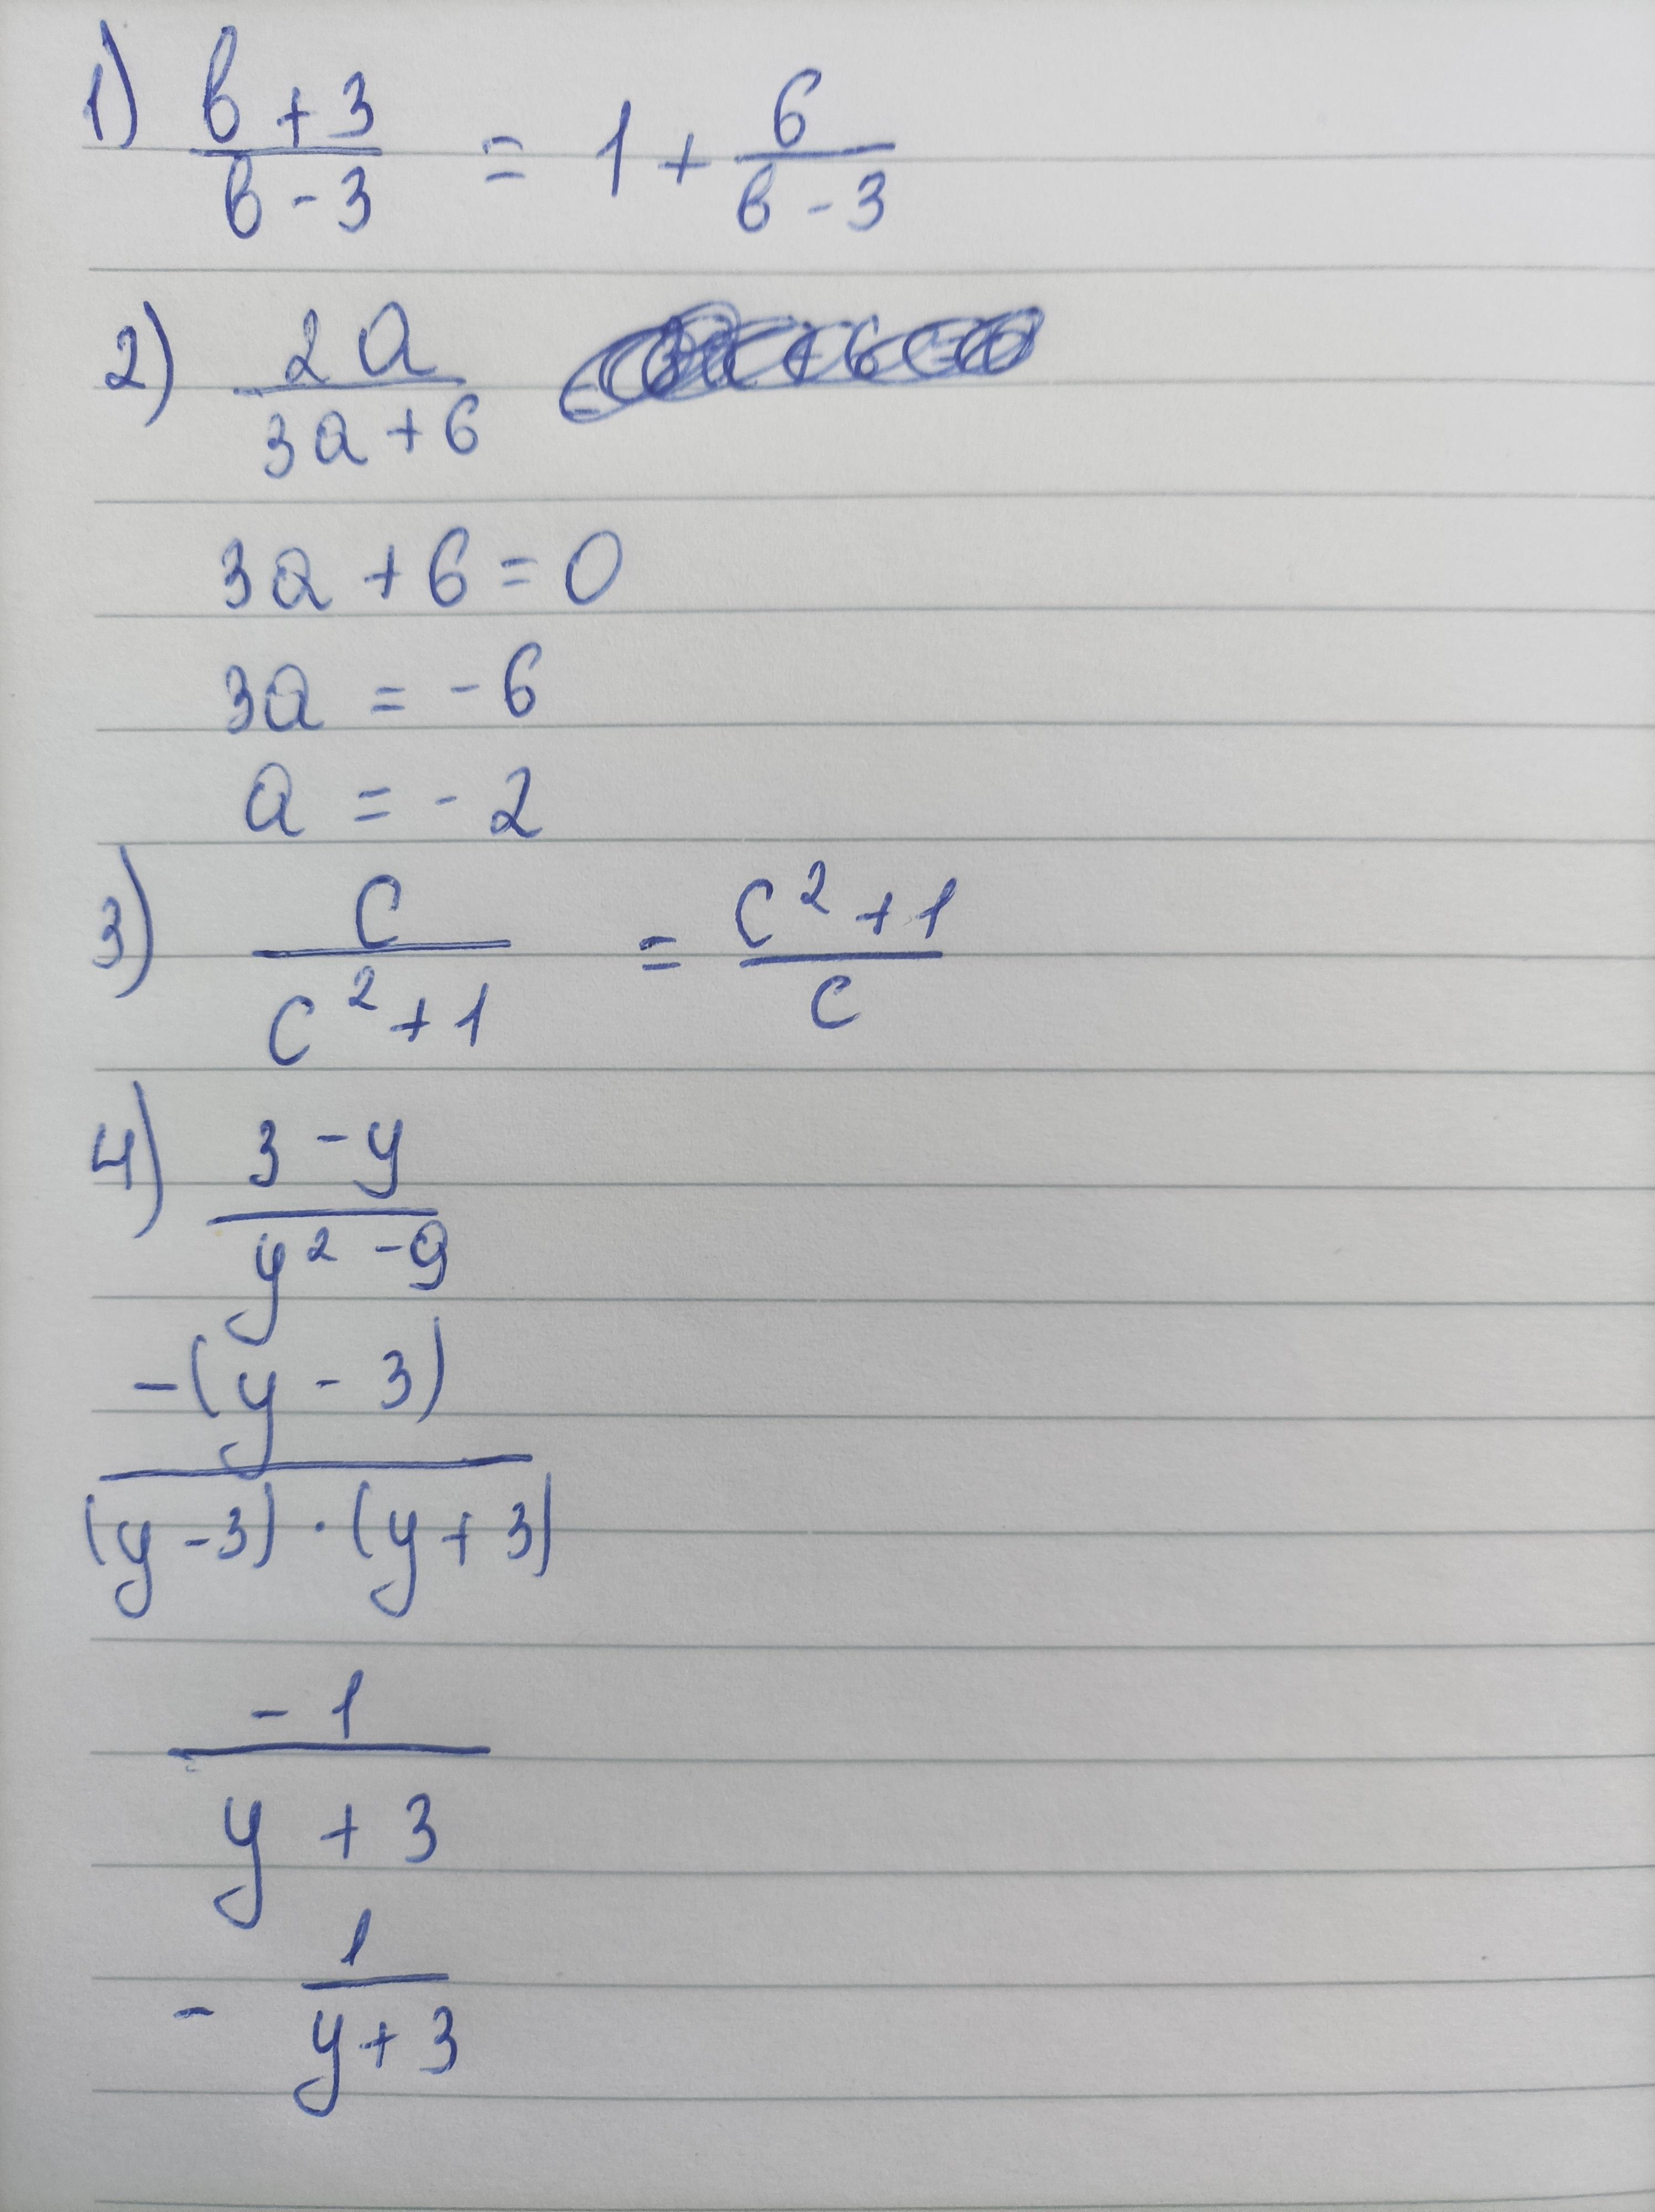 1) (b+3)/(b-3) = 1 + 6/(b-3)
2) 2a/(3a+6)
3a + 6 = 0
3a = -6
a = -2
3) c/(c²+1) = (c²+1)/c
4) (3-y)/(y²-9)
-(y-3)/((y-3)·(y+3))
-1/(y+3)
- 1/(y+3)